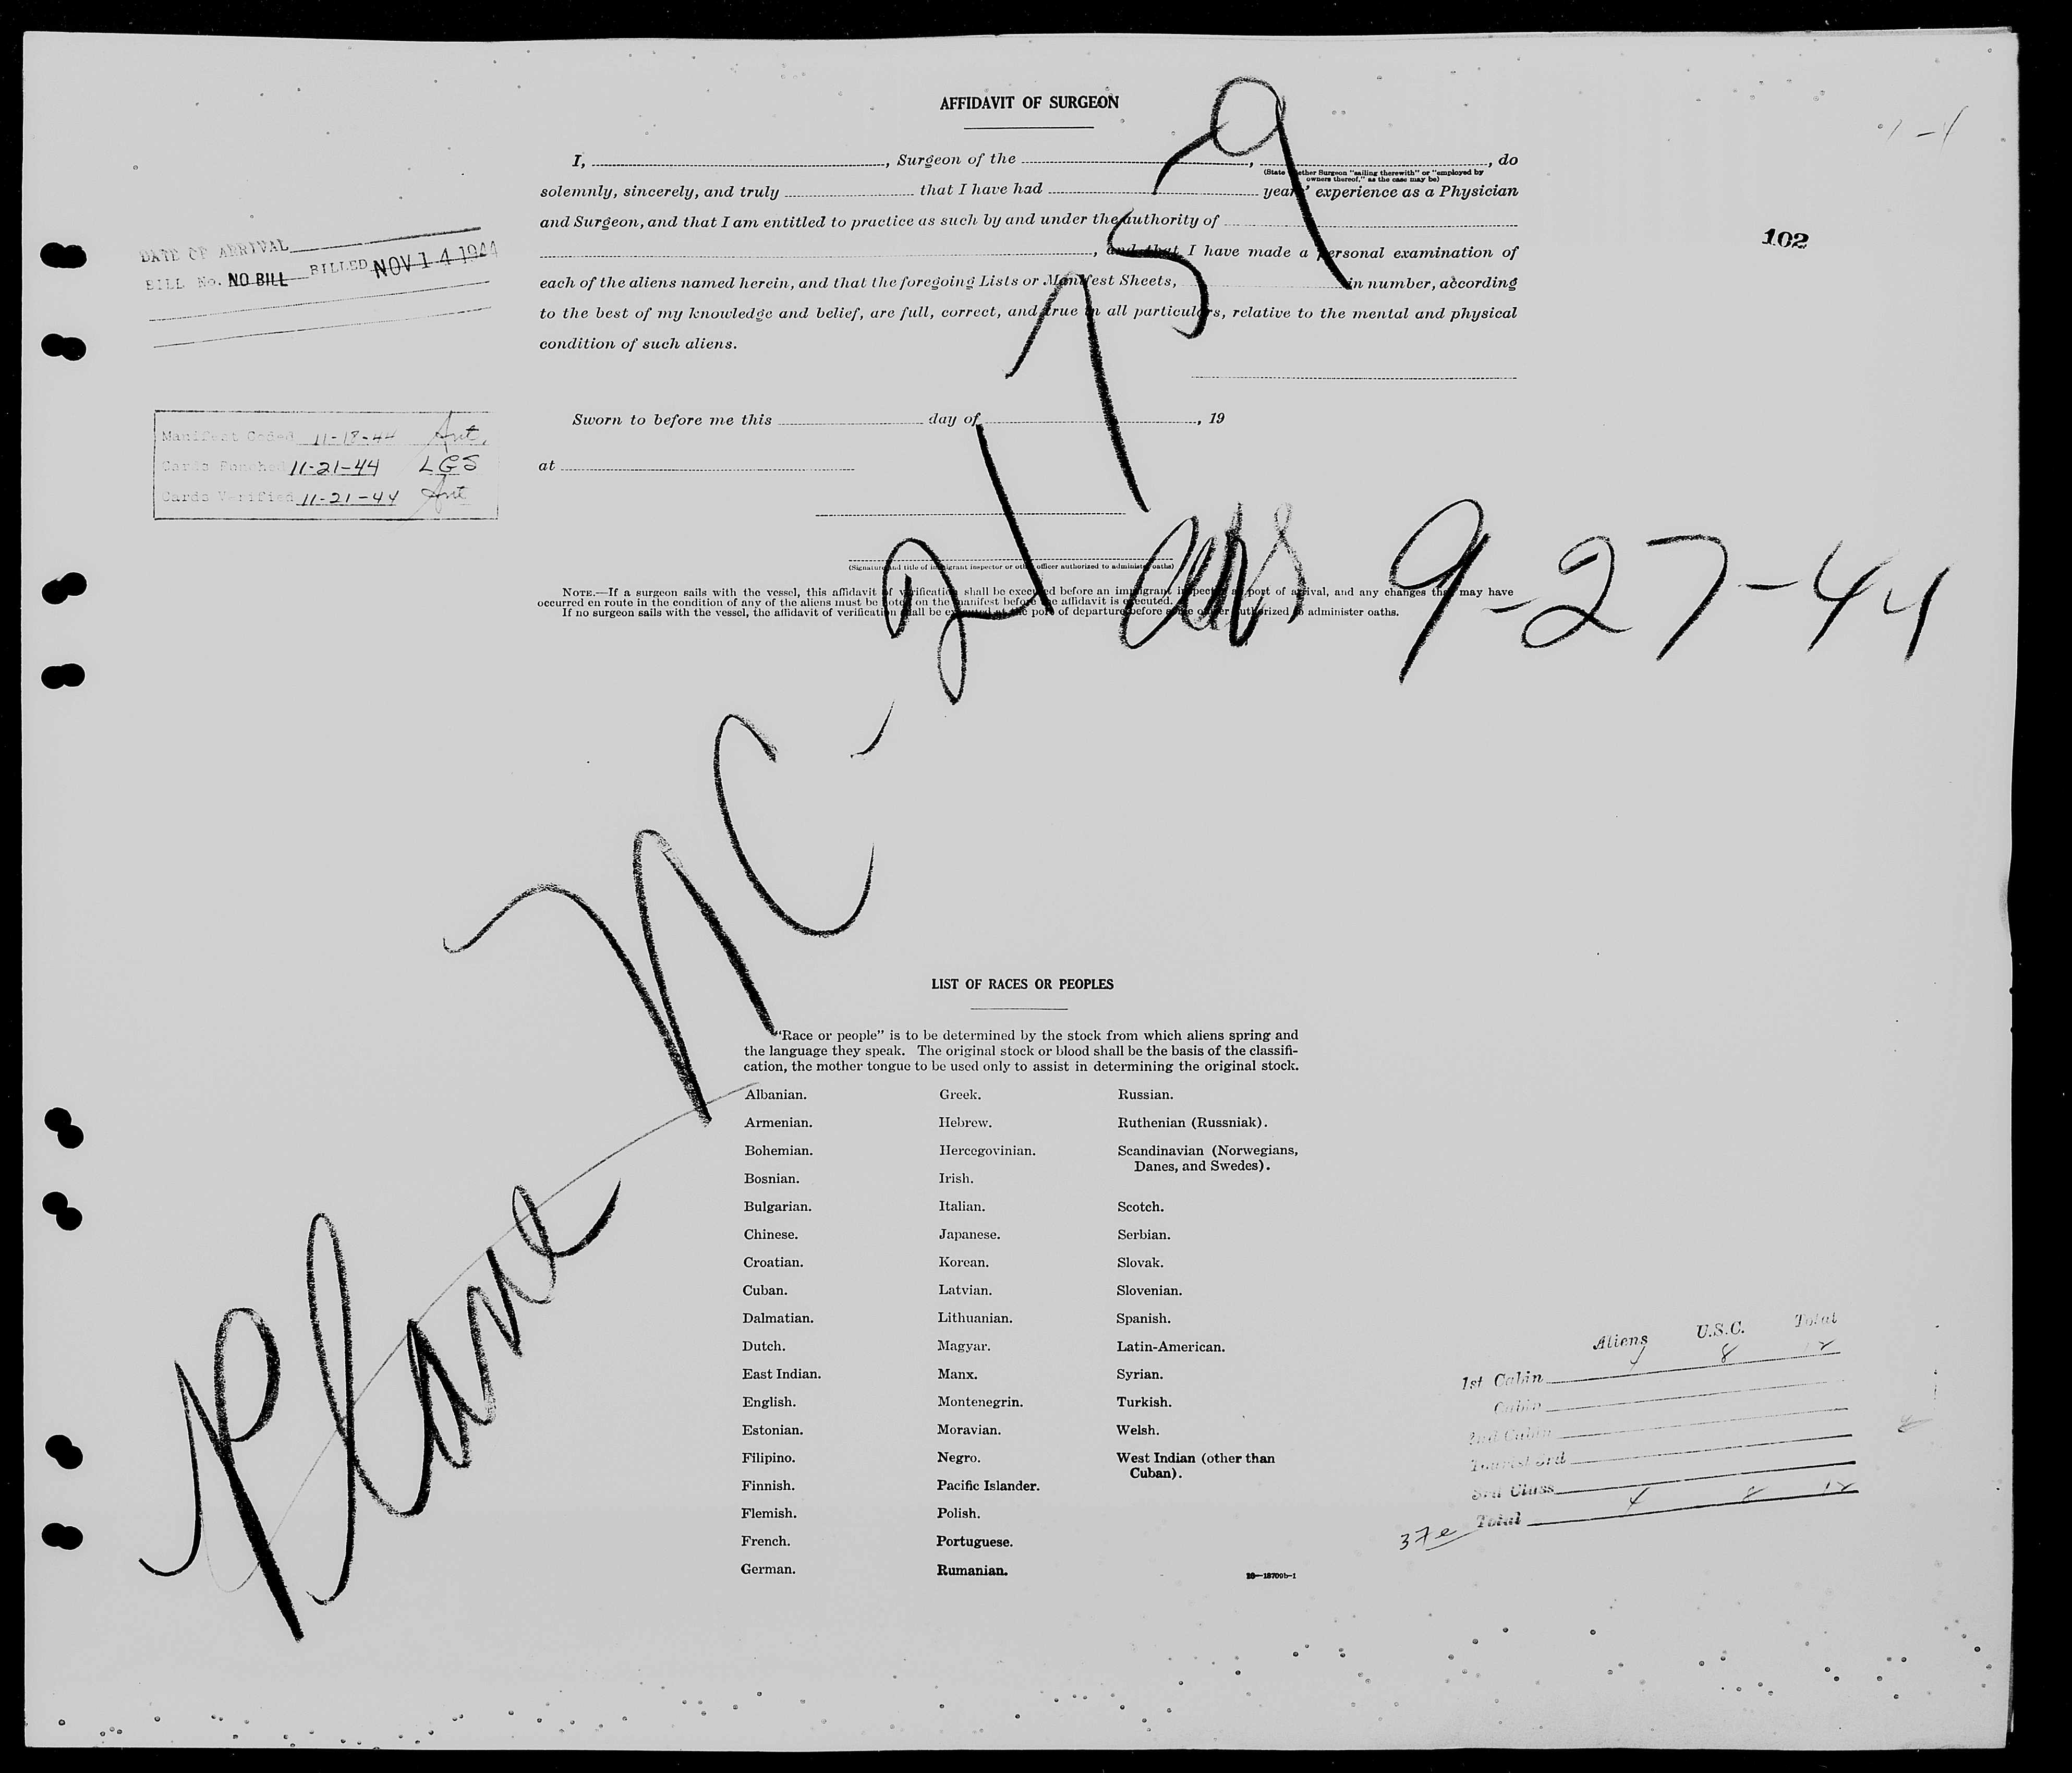 AFFIDAVIT OF SURGEON
I, , Surgeon of the , , do
(State whether Surgeon "sailing therewith" or "employed by
owners thereof," as the case may be)
solemnly, sincerely, and truly that I have had years' experience as a Physician
and Surgeon, and that I am entitled to practice as such by and under the authority of
, and that I have made a personal examination of
each of the aliens named herein, and that the foregoing Lists or Manifest Sheets, in number, according
to the best of my knowledge and belief, are full, correct, and true in all particulars, relative to the mental and physical
condition of such aliens.
Sworn to before me this day of , 19
at
(Signature and title of immigrant inspector or other officer authorized to administer oaths)
NOTE.—If a surgeon sails with the vessel, this affidavit of verification shall be executed before an immigrant inspector at port of arrival, and any changes that may have
occurred en route in the condition of any of the aliens must be noted on the manifest before the affidavit is executed.
If no surgeon sails with the vessel, the affidavit of verification shall be executed at the port of departure before some officer authorized to administer oaths.
102
DATE OF ARRIVAL
BILL No. NO BILL BILLED NOV 14 1944
Manifest Coded 11-18-44 Ant.
Cards Punched 11-21-44 LGS
Cards Verified 11-21-44 Ant
Plane NC-21759
9-27-44
LIST OF RACES OR PEOPLES
"Race or people" is to be determined by the stock from which aliens spring and
the language they speak. The original stock or blood shall be the basis of the classifi-
cation, the mother tongue to be used only to assist in determining the original stock.
Albanian. Greek. Russian.
Armenian. Hebrew. Ruthenian (Russniak).
Bohemian. Hercegovinian. Scandinavian (Norwegians,
Danes, and Swedes).
Bosnian. Irish.
Bulgarian. Italian. Scotch.
Chinese. Japanese. Serbian.
Croatian. Korean. Slovak.
Cuban. Latvian. Slovenian.
Dalmatian. Lithuanian. Spanish.
Dutch. Magyar. Latin-American.
East Indian. Manx. Syrian.
English. Montenegrin. Turkish.
Estonian. Moravian. Welsh.
Filipino. Negro. West Indian (other than
Cuban).
Finnish. Pacific Islander.
Flemish. Polish.
French. Portuguese.
German. Rumanian.
Aliens U.S.C. Total
1st Cabin 4 8 12
Cabin
2nd Cabin
Tourist 3rd
3rd Class
Total 4 8 12
37e